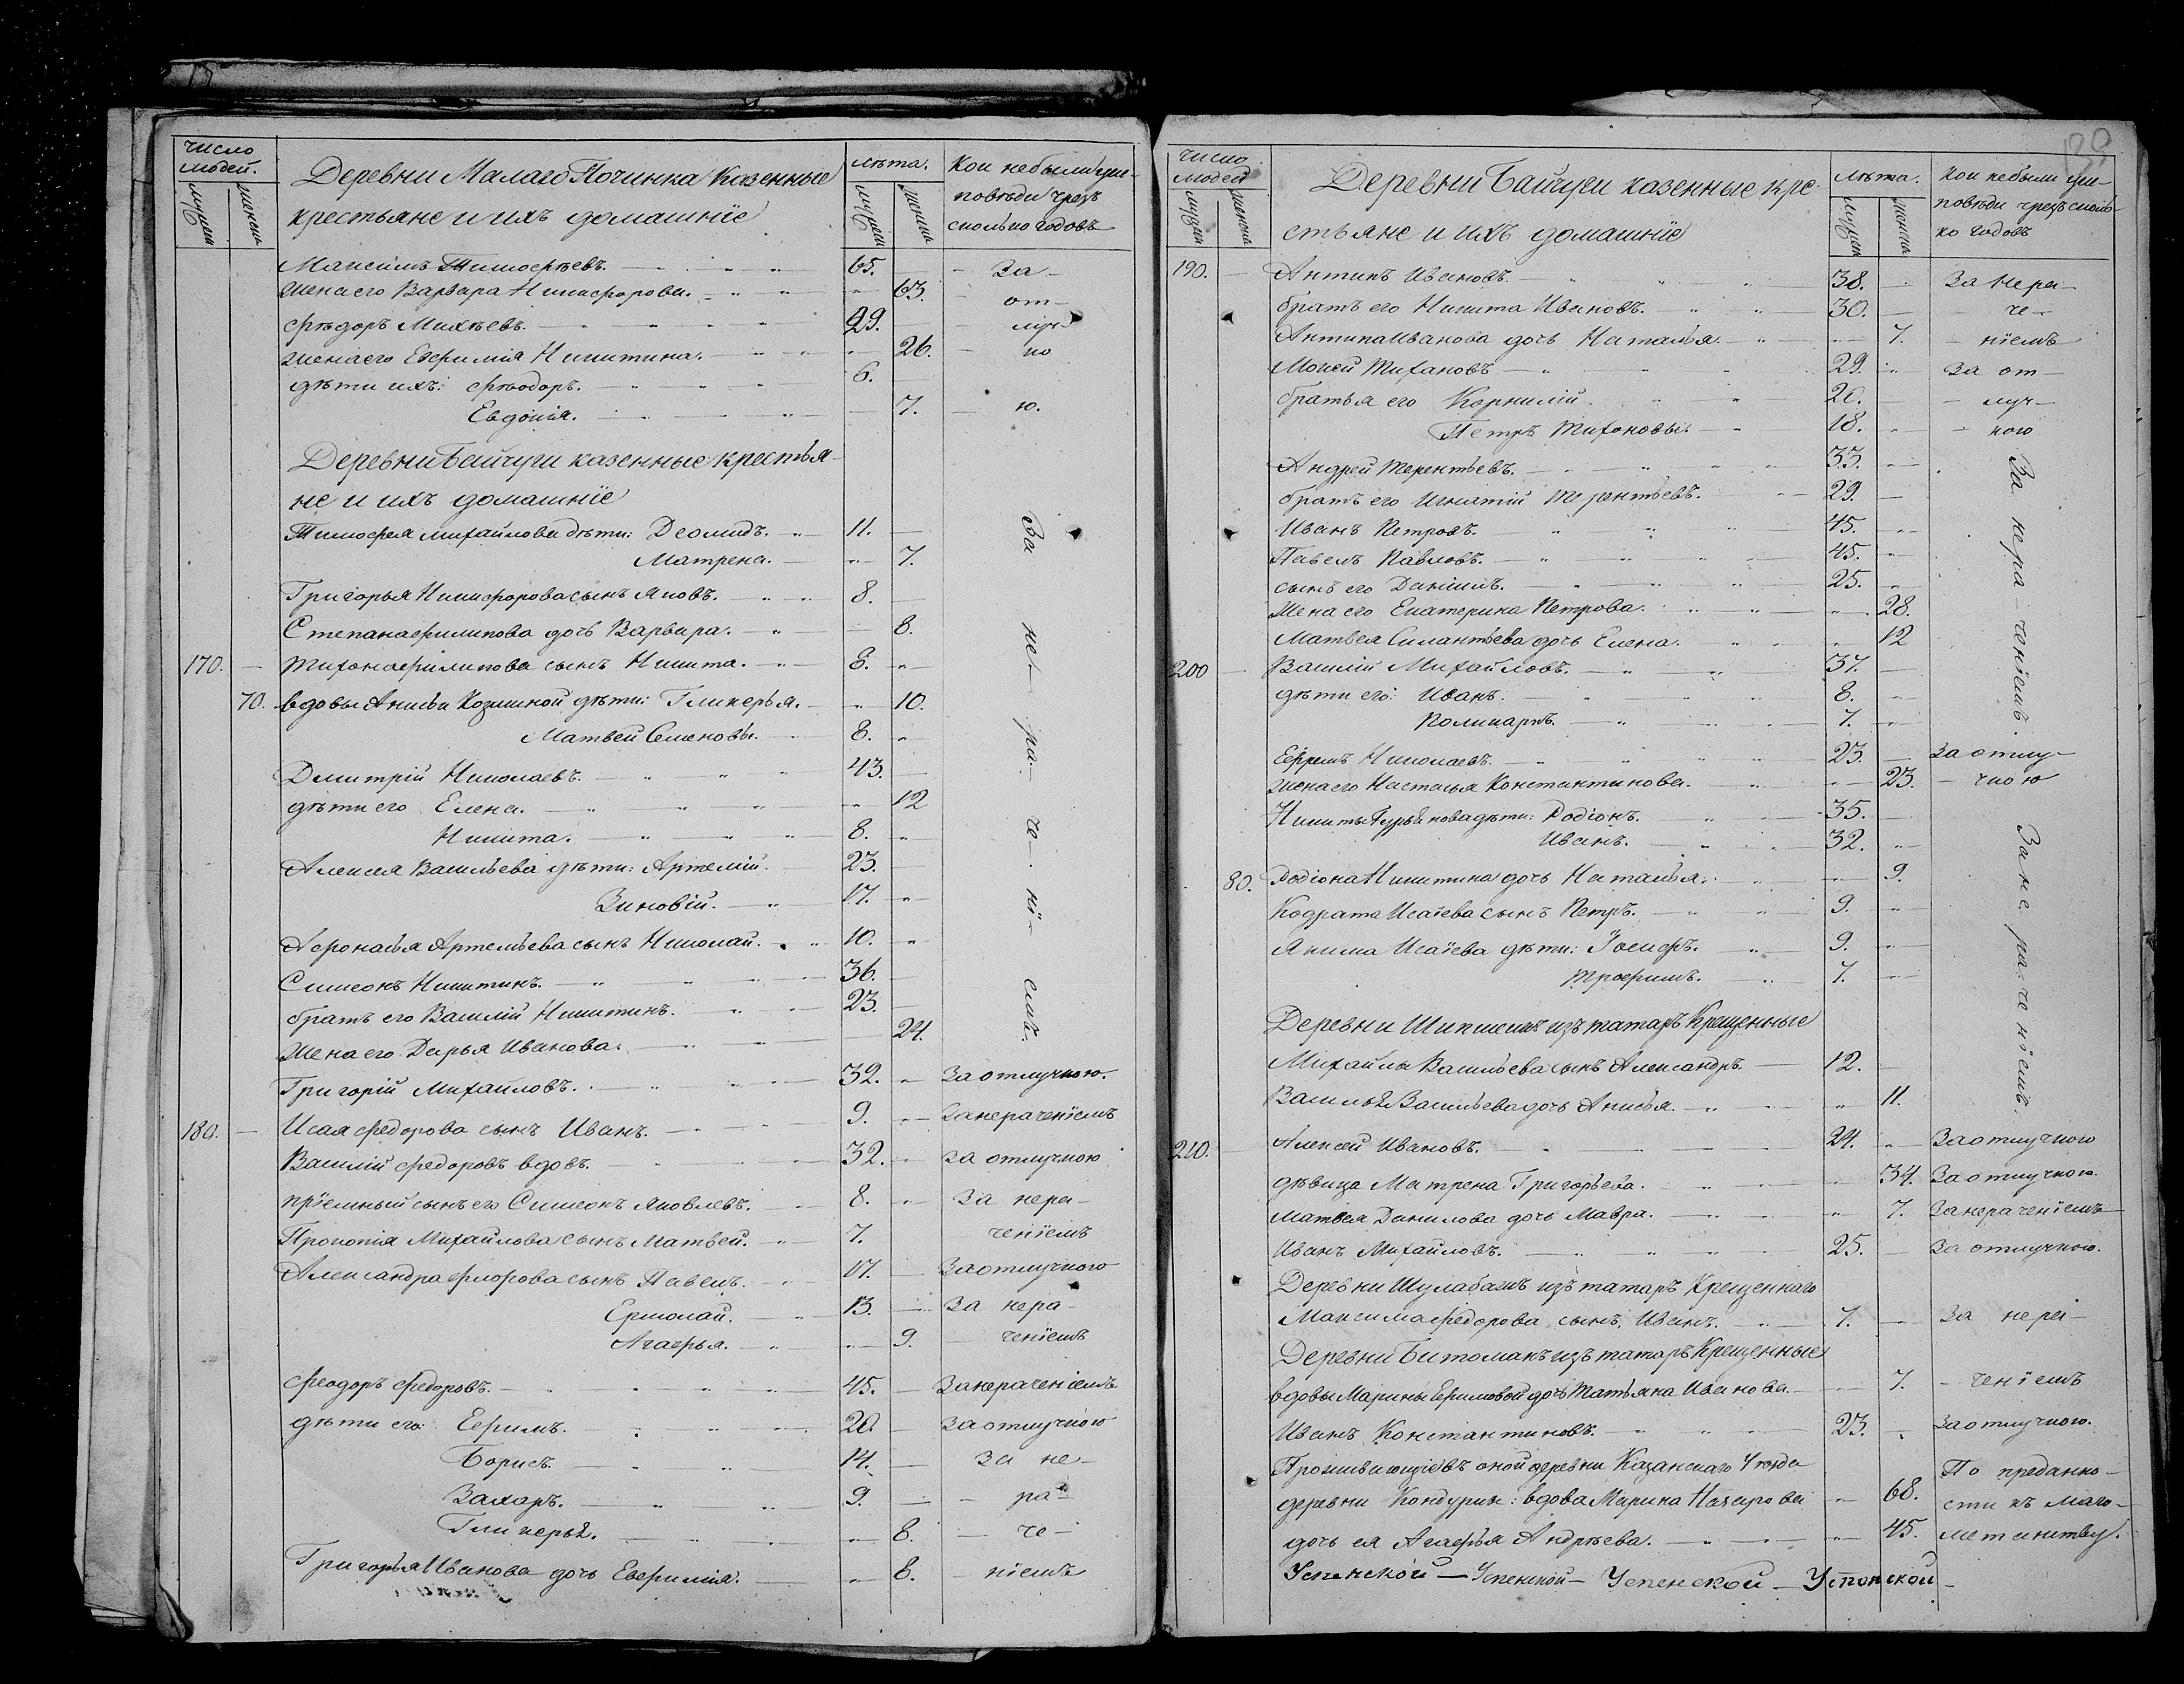 число людей.
мужеск
женска
Деревни Малаго Починка казенные
крестьяне и ихъ домашнїе
лѣта.
мужеск
женска
Кои небыли у испо-
повѣди чрезъ
сколько годовъ
Максимъ Тимофѣевъ. 65. За-
жена его Варвара Никифорова. 63. от-
Фѣдоръ Михѣевъ. 29. луч-
жена его Евфимїя Никитина. 26. но
дѣти ихъ: Фѣодоръ. 6.
Евдокїя. 7. ю.
Деревни Байчуги казенные крестья-
не и ихъ домашнїе
Тимофея Михайлова дѣти: Деомидъ. 11.
Матрена. 7.
Григорья Никифорова сынъ Яковъ. 8.
Степана Филипова дочь Варвара. 8.
170. Тихона Филипова сынъ Никита. 8.
70. вдовы Анисьи Козминой дѣти: Гликерья. 10.
Матвей Семеновы. 8.
Дмитрїй Николаевъ. 43.
дѣти его Елена. 12
Никита. 8.
Алексея Васильева дѣти: Артемїй. 23.
Зиновїй. 17.
Афонасья Артемьева сынъ Николай. 10.
Симеонъ Никитинъ. 36.
братъ его Василїй Никитинъ. 23.
жена его Дарья Иванова. 24.
За не- ра- че- нї- емъ.
Григорїй Михайловъ. 32. За отлучкою.
180. Исая Федорова сынъ Иванъ. 9. Занераченїемъ
Василїй Федоровъ вдовъ. 32. За отлучкою
прїемный сынъ его Симеонъ Яковлевъ. 8. За нера-
Прокопїя Михайлова сынъ Матвей. 7. ченїемъ
Александра Флорова сынъ Павелъ. 17. За отлучкою
Ермолай. 13. За нера-
Агафья. 9. ченїемъ
Феодоръ Федоровъ. 45. Занераченїемъ
дѣти его: Ефимъ. 20. За отлучкою
Борисъ. 14. За не-
Захаръ. 9. ра-
Гликерья. 8. че-
Григорья Иванова дочь Евфимїя. 8. нїемъ
139
число людей
мужеск
женска
Деревни Байчуги казенные кре-
стьяне и ихъ домашнїе
лѣта.
мужеск
женска
Кои небыли у ис-
повѣди чрезъ сколь-
ко годовъ
190. Антипъ Ивановъ. 38. За нера-
братъ его Никита Ивановъ. 30. че-
Антипа Иванова дочь Наталья. 7. нїемъ
Моисей Тихановъ 29. За от-
братья его Корнилїй 20. луч-
Петръ Тихоновы. 18. кою
Андрей Терентьевъ. 33.
братъ его Игнатїй Терентьевъ. 29.
Иванъ Петровъ. 45.
Павелъ Павловъ. 45.
сынъ его Данїилъ. 25.
жена его Екатерина Петрова. 28.
Матвея Силантьева дочь Елена. 12
200 Василїй Михайловъ. 37.
дѣти его: Иванъ. 8.
Поликарпъ. 7.
За нера-ченїемъ.
Ефремъ Николаевъ. 23. За отлу-
жена его Настасья Константинова. 23. чкою
Никиты Гурьянова дѣти: Родїонъ. 35.
Иванъ. 32.
80. Родїона Никитина дочь Наталья. 9.
Кодрата Исаїева сынъ Петръ. 9.
Якима Исаїева дѣти: Їосифъ. 9.
Трофимъ. 7.
Деревни Шикшекъ изъ татаръ Крещенные
Михайлы Васильева сынъ Александръ. 12.
Василья Васильева дочь Анисья. 11.
За не ра-че нїемъ.
210. Алексей Ивановъ. 24. За отлучкою
дѣвица Матрена Григорьева. 34. За отлучкою.
Матвея Данилова дочь Мавра. 7. Занераченїемъ
Иванъ Михайловъ. 25. За отлучкою.
Деревни Шумабашъ изъ татаръ Крещеннаго
Максима Федорова сынъ Иванъ. 7. За нера-
Деревни Битоманъ изъ татаръ Крещенные
вдовы Марины Ефимовой дочь Татьяна Иванова. 7. ченїемъ
Иванъ Константиновъ. 23. За отлучкою.
Проживающїе въ оной деревни Казанскаго Уезда
деревни Кондурчи: вдова Марина Назарова 68. По преданно-
дочь ея Агафья Андрѣева. 45. сти къ маго-
метанству.
Успенской — Успенской — Успенской — Успенской —